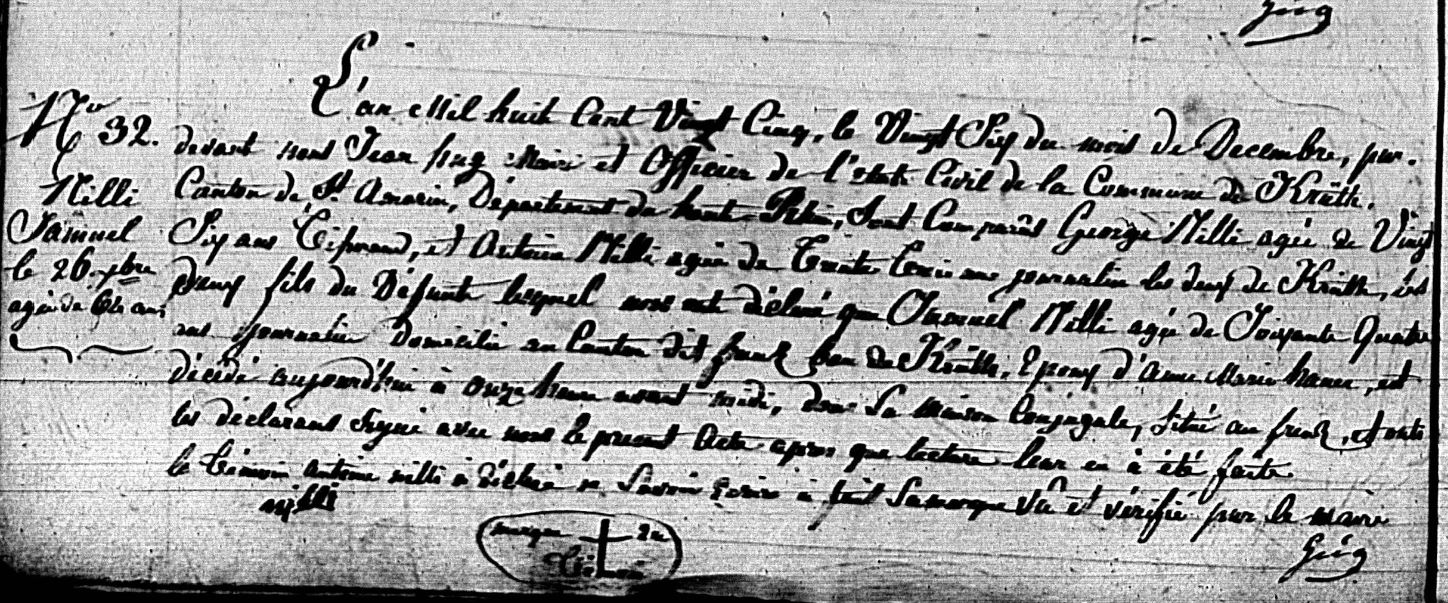 L'an Mil huit Cent Vingt Cinq, le Vingt Six du mois de Decembre, par.
No 32. devant nous Jean hug Maire et Officier de l'etat Civil de la Commune de Krüth,
Nilli Canton de St. Amarin, Département du haut Rhin, sont Comparûs George Nilli agée de Vingt
Samuel Six ans Tisserand, et Antoine Nilli agée de Trente ans journalier les deux de Krüth, les
le 26. xbre deux fils du Défunt lesquel nous ont déclaré que Samuel Nilli agée de Soixante Quatre
agée de 64 ans ans journalier Domicilié au Canton dit frenz ban de Krüth, Epoux d'anne Marie, est
décédé aujourd'hui à onze heure avant midi, dans La Maison Conjugale, Situé au frenz, et ont
les déclarans Signé avec nous Le present Acte apres que lecture leur en à été faite
le Témoin antoine nilli à déclaré ne Savoir Ecrire à fait Sa marque Vû et vérifié par le maire
nilli
marque de
Témoin
hug